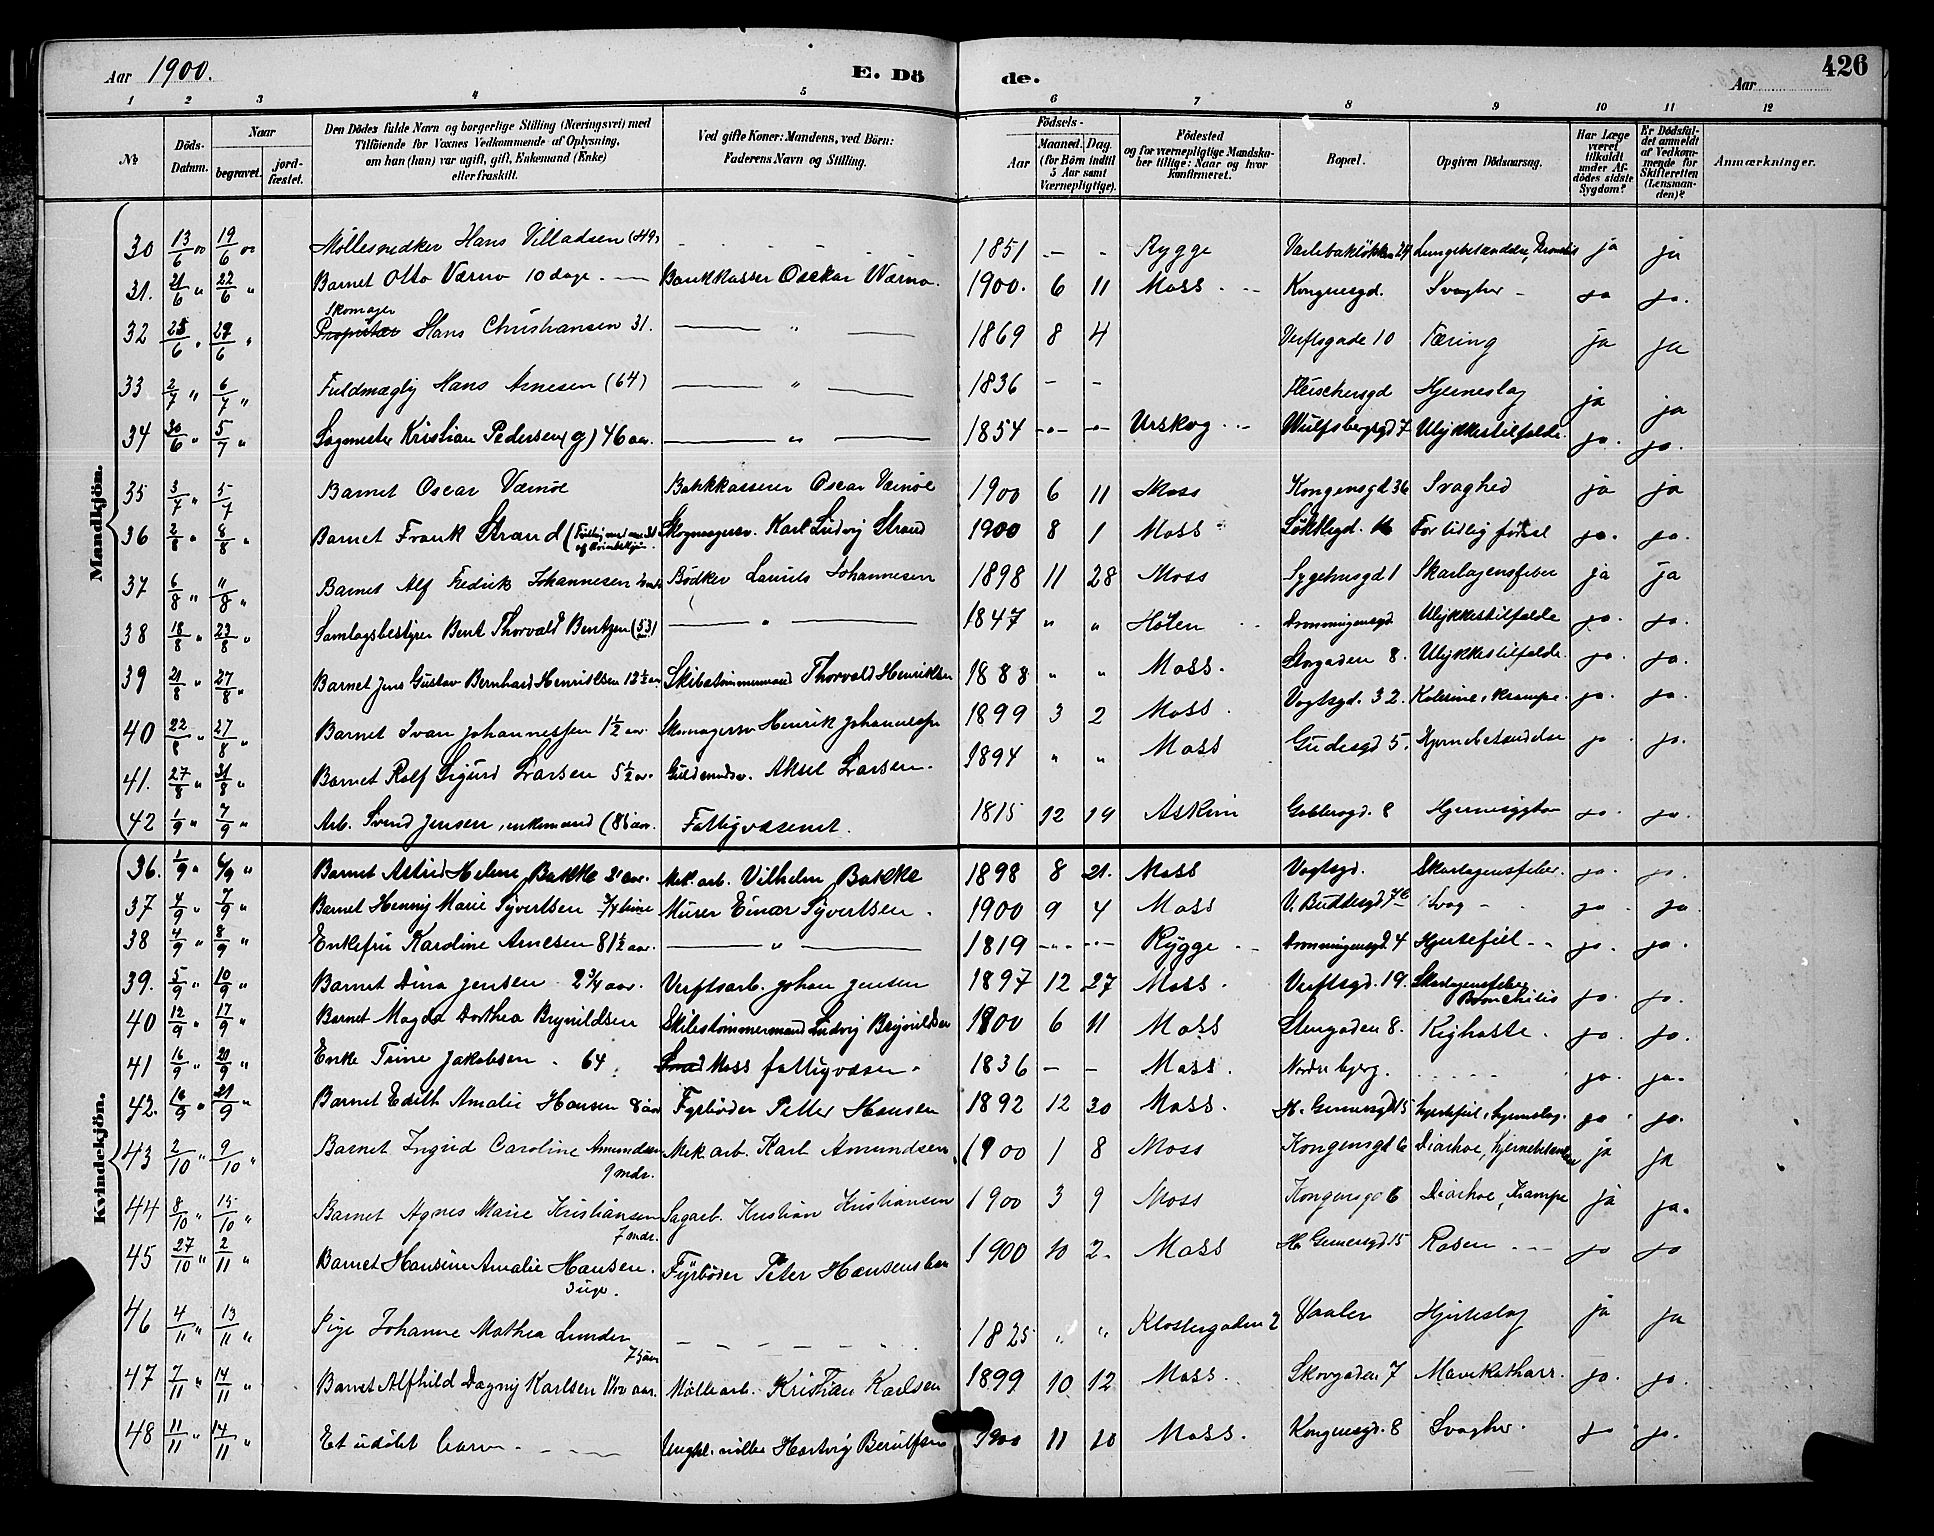 Aar 1900.
E. Dö
de.
Aar
426
1 2 3 4 5 6 7 8 9 10 11 12
№
Döds-Datum.
Naar begravet. jordfæstet.
Den Dödes fulde Navn og borgerlige Stilling (Næringsvei) med Tilföiende for Voxnes Vedkommende af Oplysning, om han (hun) var ugift, gift, Enkemand (Enke) eller fraskilt.
Ved gifte Koner: Mandens, ved Börn: Faderens Navn og Stilling.
Födsels- Aar Maaned. Dag. (for Börn indtil 5 Aar samt Værnepligtige).
Födested og for værnepligtige Mandskaber tillige: Naar og hvor konfirmeret.
Bopæl.
Opgiven Dödsaarsag.
Har Læge været tilkaldt under Afdödes sidste Sygdom?
Er Dödsfaldet anmeldt af Vedkommende for Skifteretten (Lensmanden)?
Anmærkninger.
Mandkjön.
30 13/6 00 19/6 00 Møllesnedker Hans Villadsen (49) 1851 - - Rygge Varlebakløkken 24 Lungebetændelse, ja ja
31. 21/6 " 22/6 " Barnet Otto Værno 10 dage Bankkasser Osckar Wærno. 1900. 6 11 Moss Kongensgd. Svaghed ja ja.
32 25/6 " 29/6 " Propritær Skomager Hans Christiansen 31. " 1869 8 4 Verftsgade 10 Tæring ja ja
33 2/7 " 6/7 " Fuldmægtig Hans Arnesen (64) " 1836 - - Fleischersgd Hjerneslag ja ja
34 30/6 " 5/7 " Sagmester Kristian Pedersen (g) 46 aar. " 1854 -"- -"- Urskog Wulfsbergsgd 7 Ulykkestilfælde. ja. ja.
35 3/7 " 5/7 Barnet Oscar Værnøe Bankkasserer Oscar Værnøe 1900 6 11 Moss Kongensgd 36 Svaghed ja ja
36 2/8 " 8/8 " Barnet Frank Strand ( Skomagersv. Karl Ludvig Strand 1900 8 1 Moss For tidlig fødsel ja. ja.
37 6/8 " "/8 " Barnet Alf Fredrik Johannesen Bødker Laurits Johannesen 1898 11 28 Moss Sygehusgd 1 Skarlagensfeber ja ja
38 18/8 " 23/8 " Samlagsbestyrer Bent Thorvald Bentzen (53) " 1847 " " Hølen Dronningensgd Ulykkestilfælde ja. ja.
39 21/8 " 27/8 " Barnet Jens Gustav Bernhard Henriksen 12½ aar Skibstømmermand Thorvald Henriksen 1888 " " Moss. Storgaden 8. Ulykkestilfælde. ja. ja.
40 22/8 " 27/8 " Barnet Ivan Johannessen 1½ aar Skomagersv Henrik Johannessen 1899 3 2 Moss. Vogtsgd. 32. Kolerine, Krampe. ja. ja.
41. 27/8 " 31/8 " Barnet Rolf Sigurd Larsen 5½ aar. Guldsmedsv. Aksel Larsen. 1894 " " Moss Gudesgd 5. Hjernebetændelse ja. ja.
42 1/9 " 7/9 " Arb. Svend Jensen, enkemand (85 aar. Fattigvæsenet. 1815 12 19 Askim Goblersgd. 8 Hjernesygdom ja. ja.
Kvindekjön.
36. 1/9 " 6/9 " Barnet Astrid Helene Bakke 2 aar. Mek. arb. Vilhelm Bakke 1898 8 21. Moss Vogtsgd. Skarlagensfeber. ja. ja.
37 4/9 " 7/9 " Barnet Henny Marie Syvertsen ¾ time Murer Einar Syvertsen. 1900 9 4 Moss V. Buddesgd 7 Svag ja. ja
38 4/9 " 8/9 " Enkefru Karoline Arnesen 81½ aar. " 1819 Rygge Dronningensgd. 4 Hjertefeil ja. ja.
39. 5/9 " 10/9 " Barnet Dina Jensen 2¾ aar. Verftsarb. Johan Jensen 1897 12 27 Moss. Verftsgd. 19. Skarlagensfeber Bronchitis ja. ja.
40 12/9 " 17/9 " Barnet Magda Dorthea Brynildsen Skibstømmermand Ludvig Brynildsen 1900 6 11 Moss Storgaden 8. Kighoste. ja. ja.
41 16/9 " 20/9 " Enke Trine Jakobsen. 64 Moss fattigvæsen. 1836 - - Moss. Nordre bjerg. ja. ja.
42. 16/9 " 21/9 " Barnet Edith Amalie Hansen 8 aar Fyrbøder Petter Hansen 1892 12 30 Moss. H. Gernersgd 15 hjertefeil, hjerneslag. ja. ja.
43 2/10 " 9/10 " Barnet Ingrid Caroline Amundsen 9 mdr. Mek. arb. Karl Amundsen 1900 1 8 Moss Kongensgd 6 Diarhoe, hjernebetændelse ja ja
44 8/10 " 15/10 " Barnet Agnes Marie Kristiansen 7 mdr. Sagarb. Kristian Kristiansen 1900 3 9 Moss Kongensgd 6 Diarhoe, Krampe ja ja.
45 27/10 " 2/11 " Barnet Hansine Amalie Hansen. 3 uger. Fyrbøder Peter Hansens barn 1900 10 2. Moss H. Gernersgd 15 Rosen ja ja
46 4/11 " 13/11 " Pige Johanne Mathea Lunder 75 aar 1825 " " Klostergaden 2 Vaaler Hjerteslag ja ja
47 7/11 " 14/11 " Barnet Alfhild Dagny Karlsen 1 aar. Møllearb. Kristian Karlsen 1899 10 12 Moss. Skovgaden 7 Mavekatharr. ja. ja.
48 11/11 " 14/11 " Et udøbt barn Ungk. møller Hartvig Berulfsen 1900 11 10 Moss. Kongensgd. 8 Svaghed. ja ja.